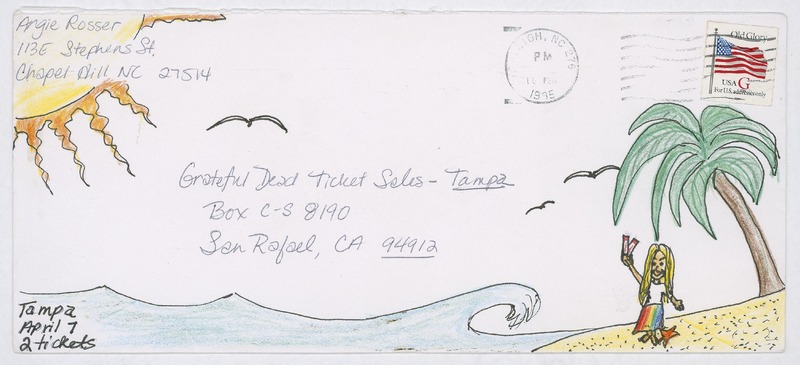 Angie Rosser
113E Stephens St.
Chapel Hill, NC 27514
NC 276
PM
1995
Old Glory
USA G
For U.S. addresses only
Grateful Dead Ticket Sales - Tampa
Box C-S 8190
San Rafael, CA 94912
Tampa
April 7
2 tickets